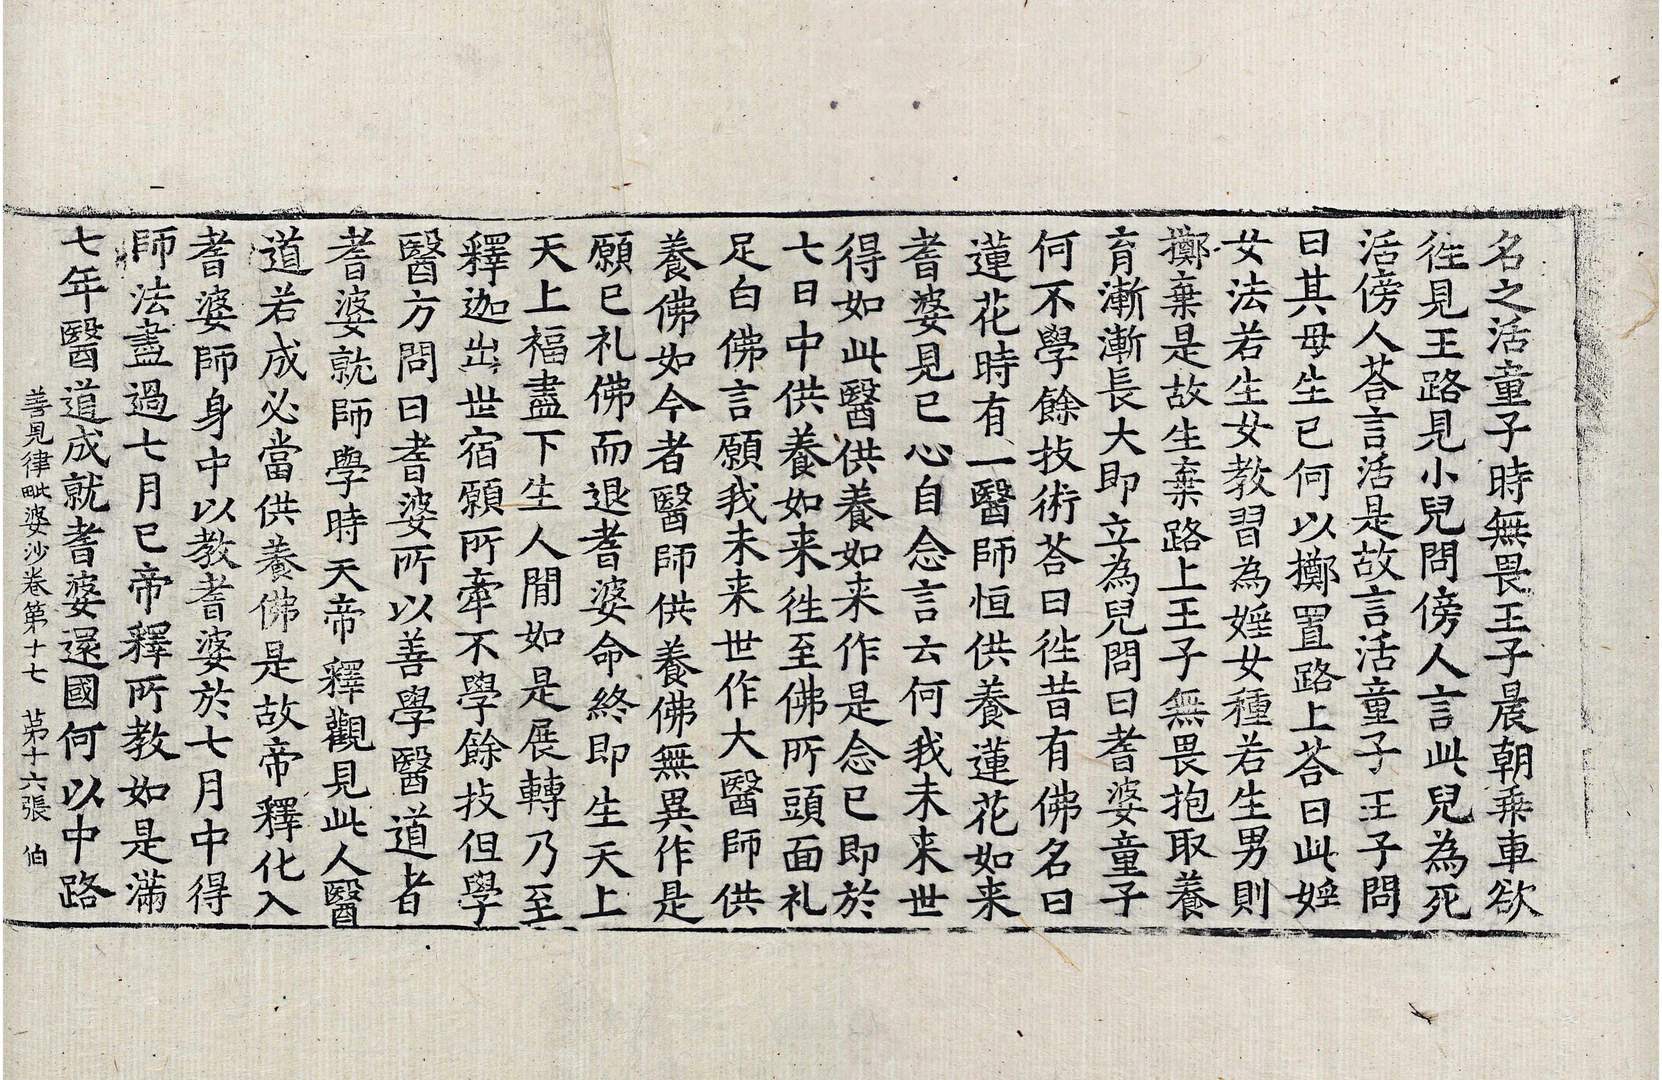 名之活童子時無畏王子晨朝乗車欲
徃見王路見小兒問傍人言此兒為死
活傍人荅言活是故言活童子王子問
曰其母生已何以擲置路上荅曰此婬
女法若生女教習為婬女種若生男則
擲棄是故生棄路上王子無畏抱取養
育漸漸長大即立為兒問曰耆婆童子
何不學餘技術荅曰徃昔有佛名曰
蓮花時有一醫師恒供養蓮花如来
耆婆見已心自念言云何我未来世
得如此醫供養如来作是念已即於
七日中供養如来徃至佛所頭面礼
足白佛言願我未来世作大醫師供
養佛如今者醫師供養佛無異作是
願已礼佛而退耆婆命終即生天上
天上福盡下生人間如是展轉乃至
釋迦出世宿願所牽不學餘技但學
醫方問曰耆婆所以善學醫道者
耆婆就師學時天帝釋觀見此人醫
道若成必當供養佛是故帝釋化入
耆婆師身中以教耆婆於七月中得
師法盡過七月已帝釋所教如是滿
七年醫道成就耆婆還國何以中路
善見律毗婆沙卷第十七　苐十六張　伯